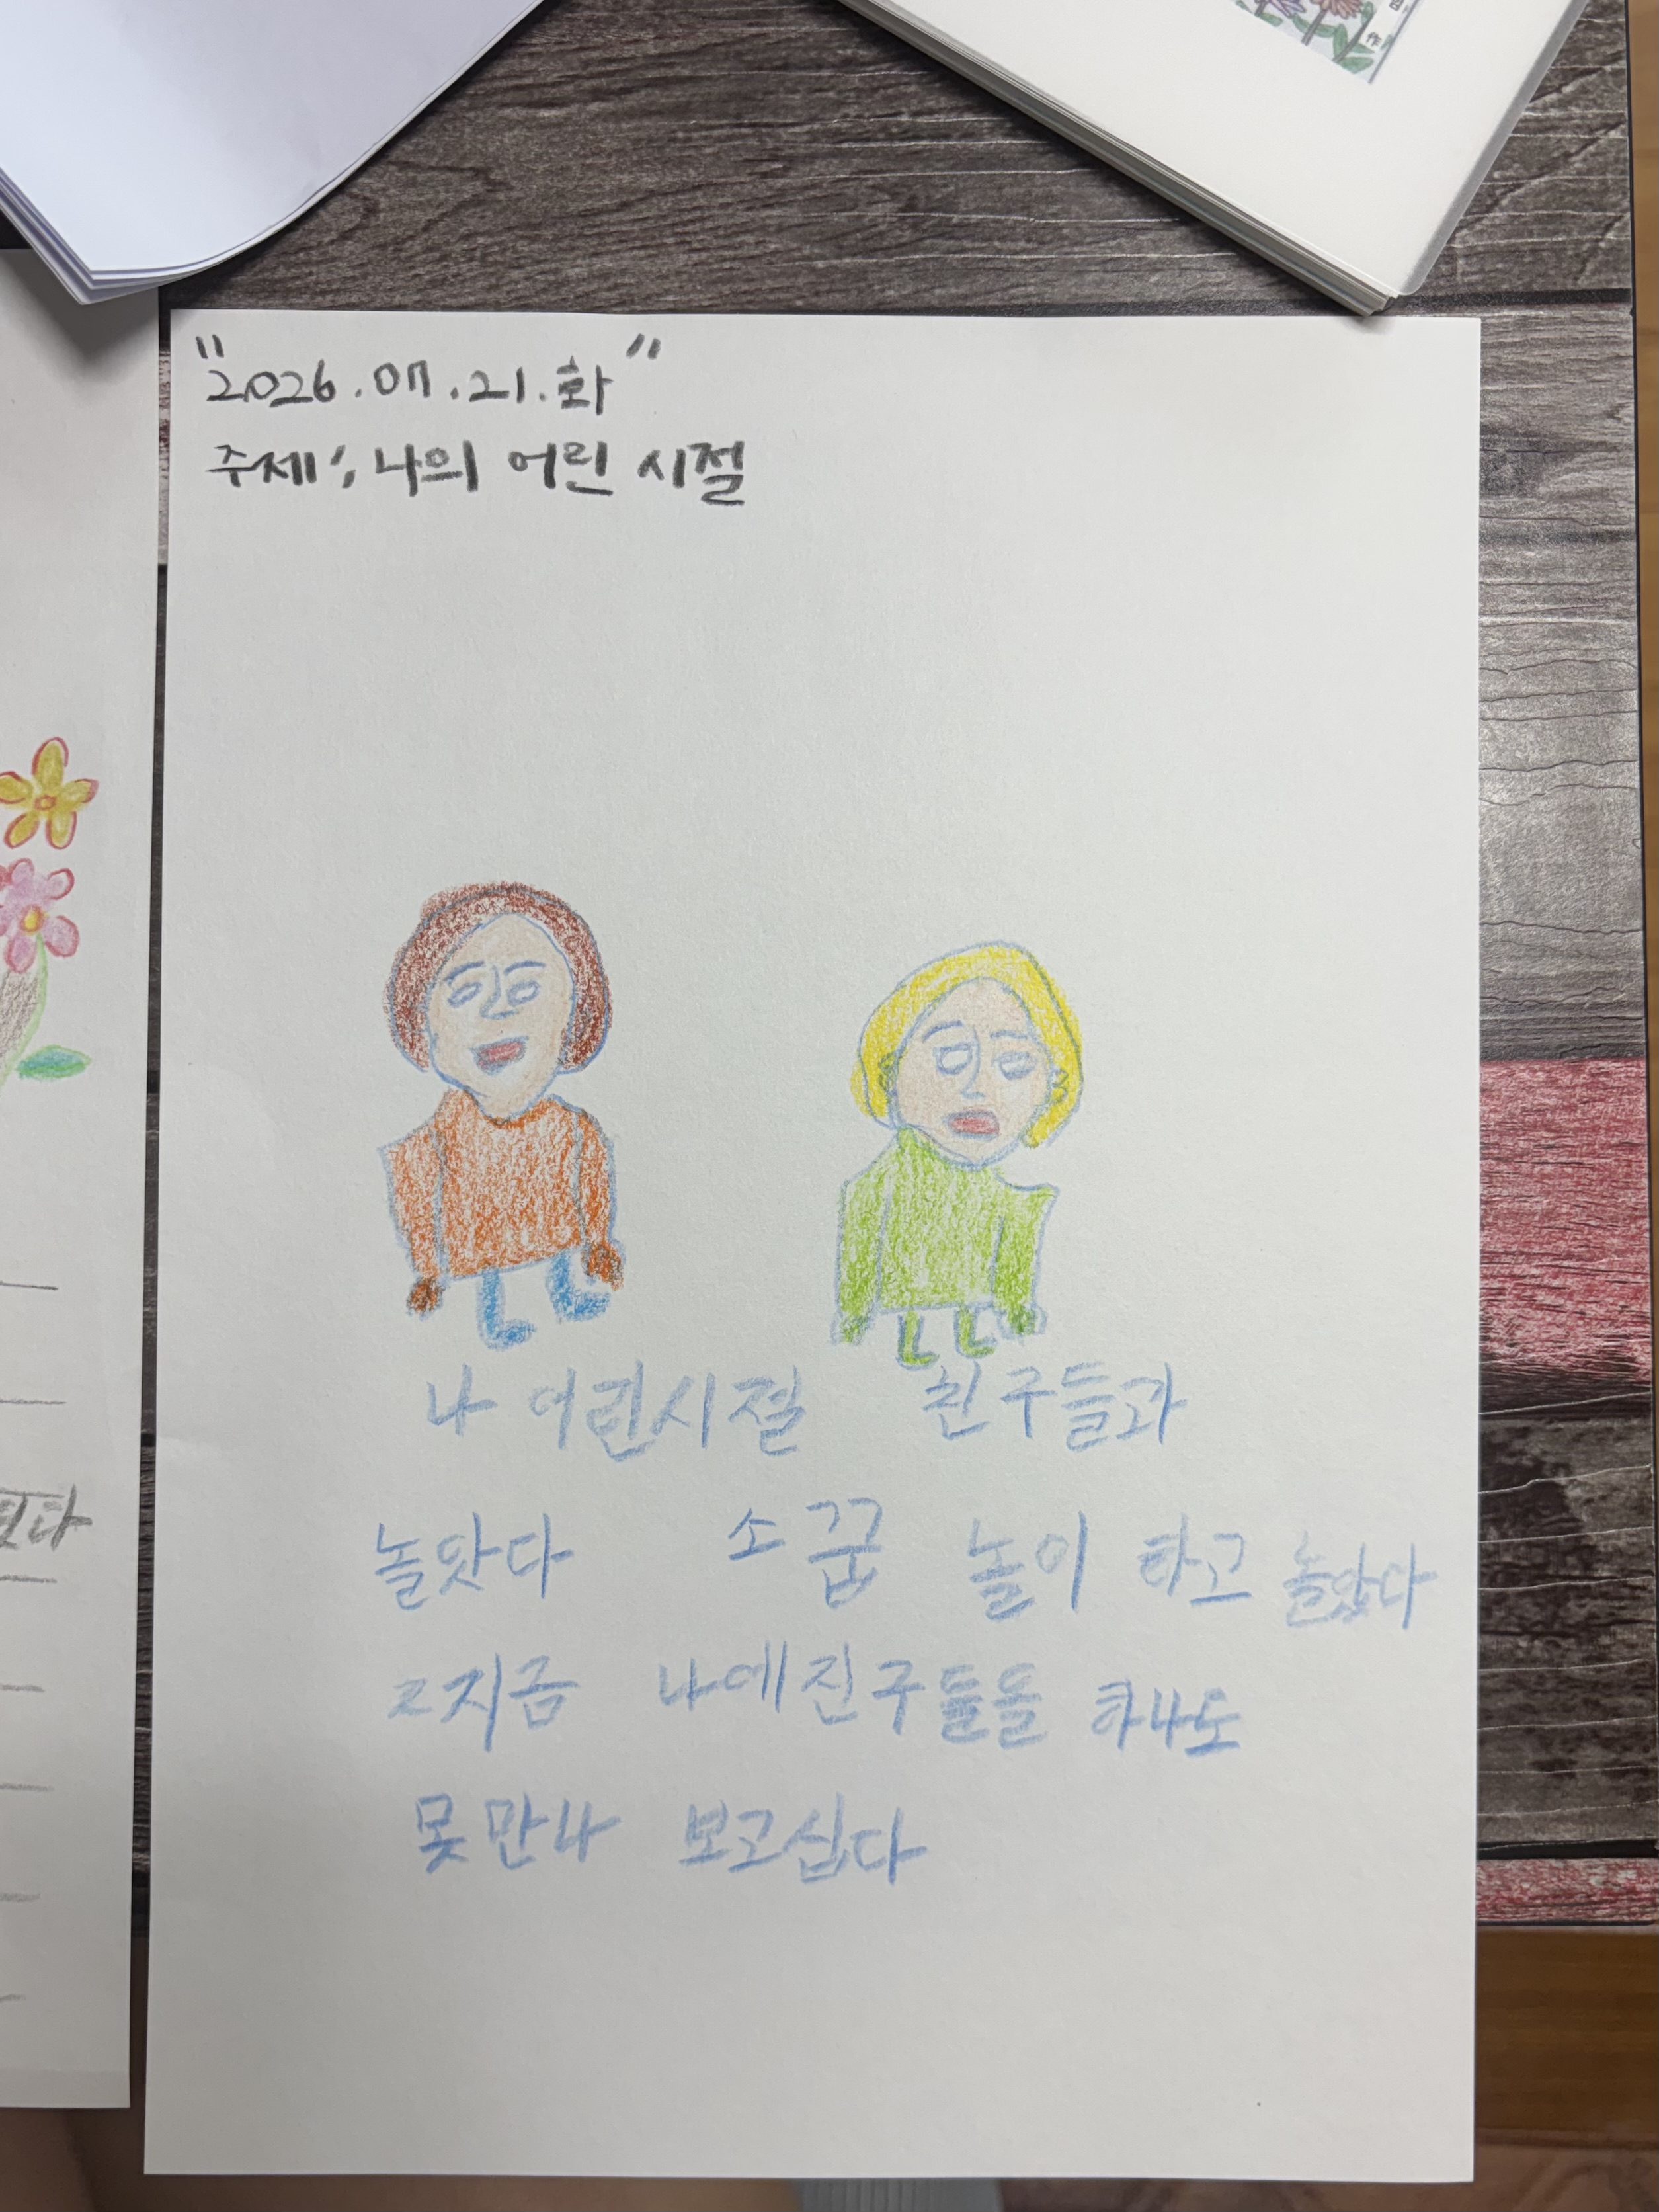 "2026.07.21.화"
주제; 나의 어린 시절
나 어린시절 친구들과
놀맛다 소꿉 놀이 하고 놀았다
지금 나에친구들들 하나도
못만나 보고십다